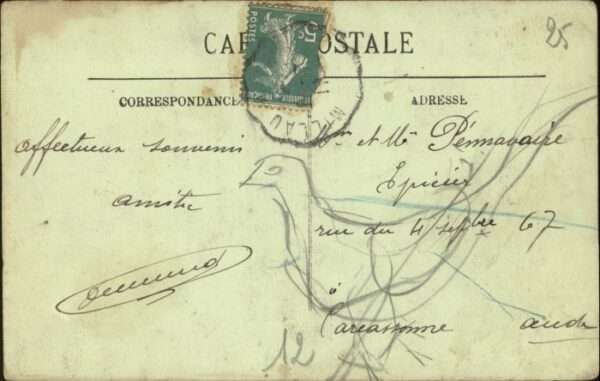 CARTE POSTALE
25
5c
POSTES
MILLAU
CORRESPONDANCE
ADRESSE
affectueux souvenir
amitié
Mr et Me Pennavaire
Epicier
rue du 4 septbre 67
à
Carcassonne
aude
12